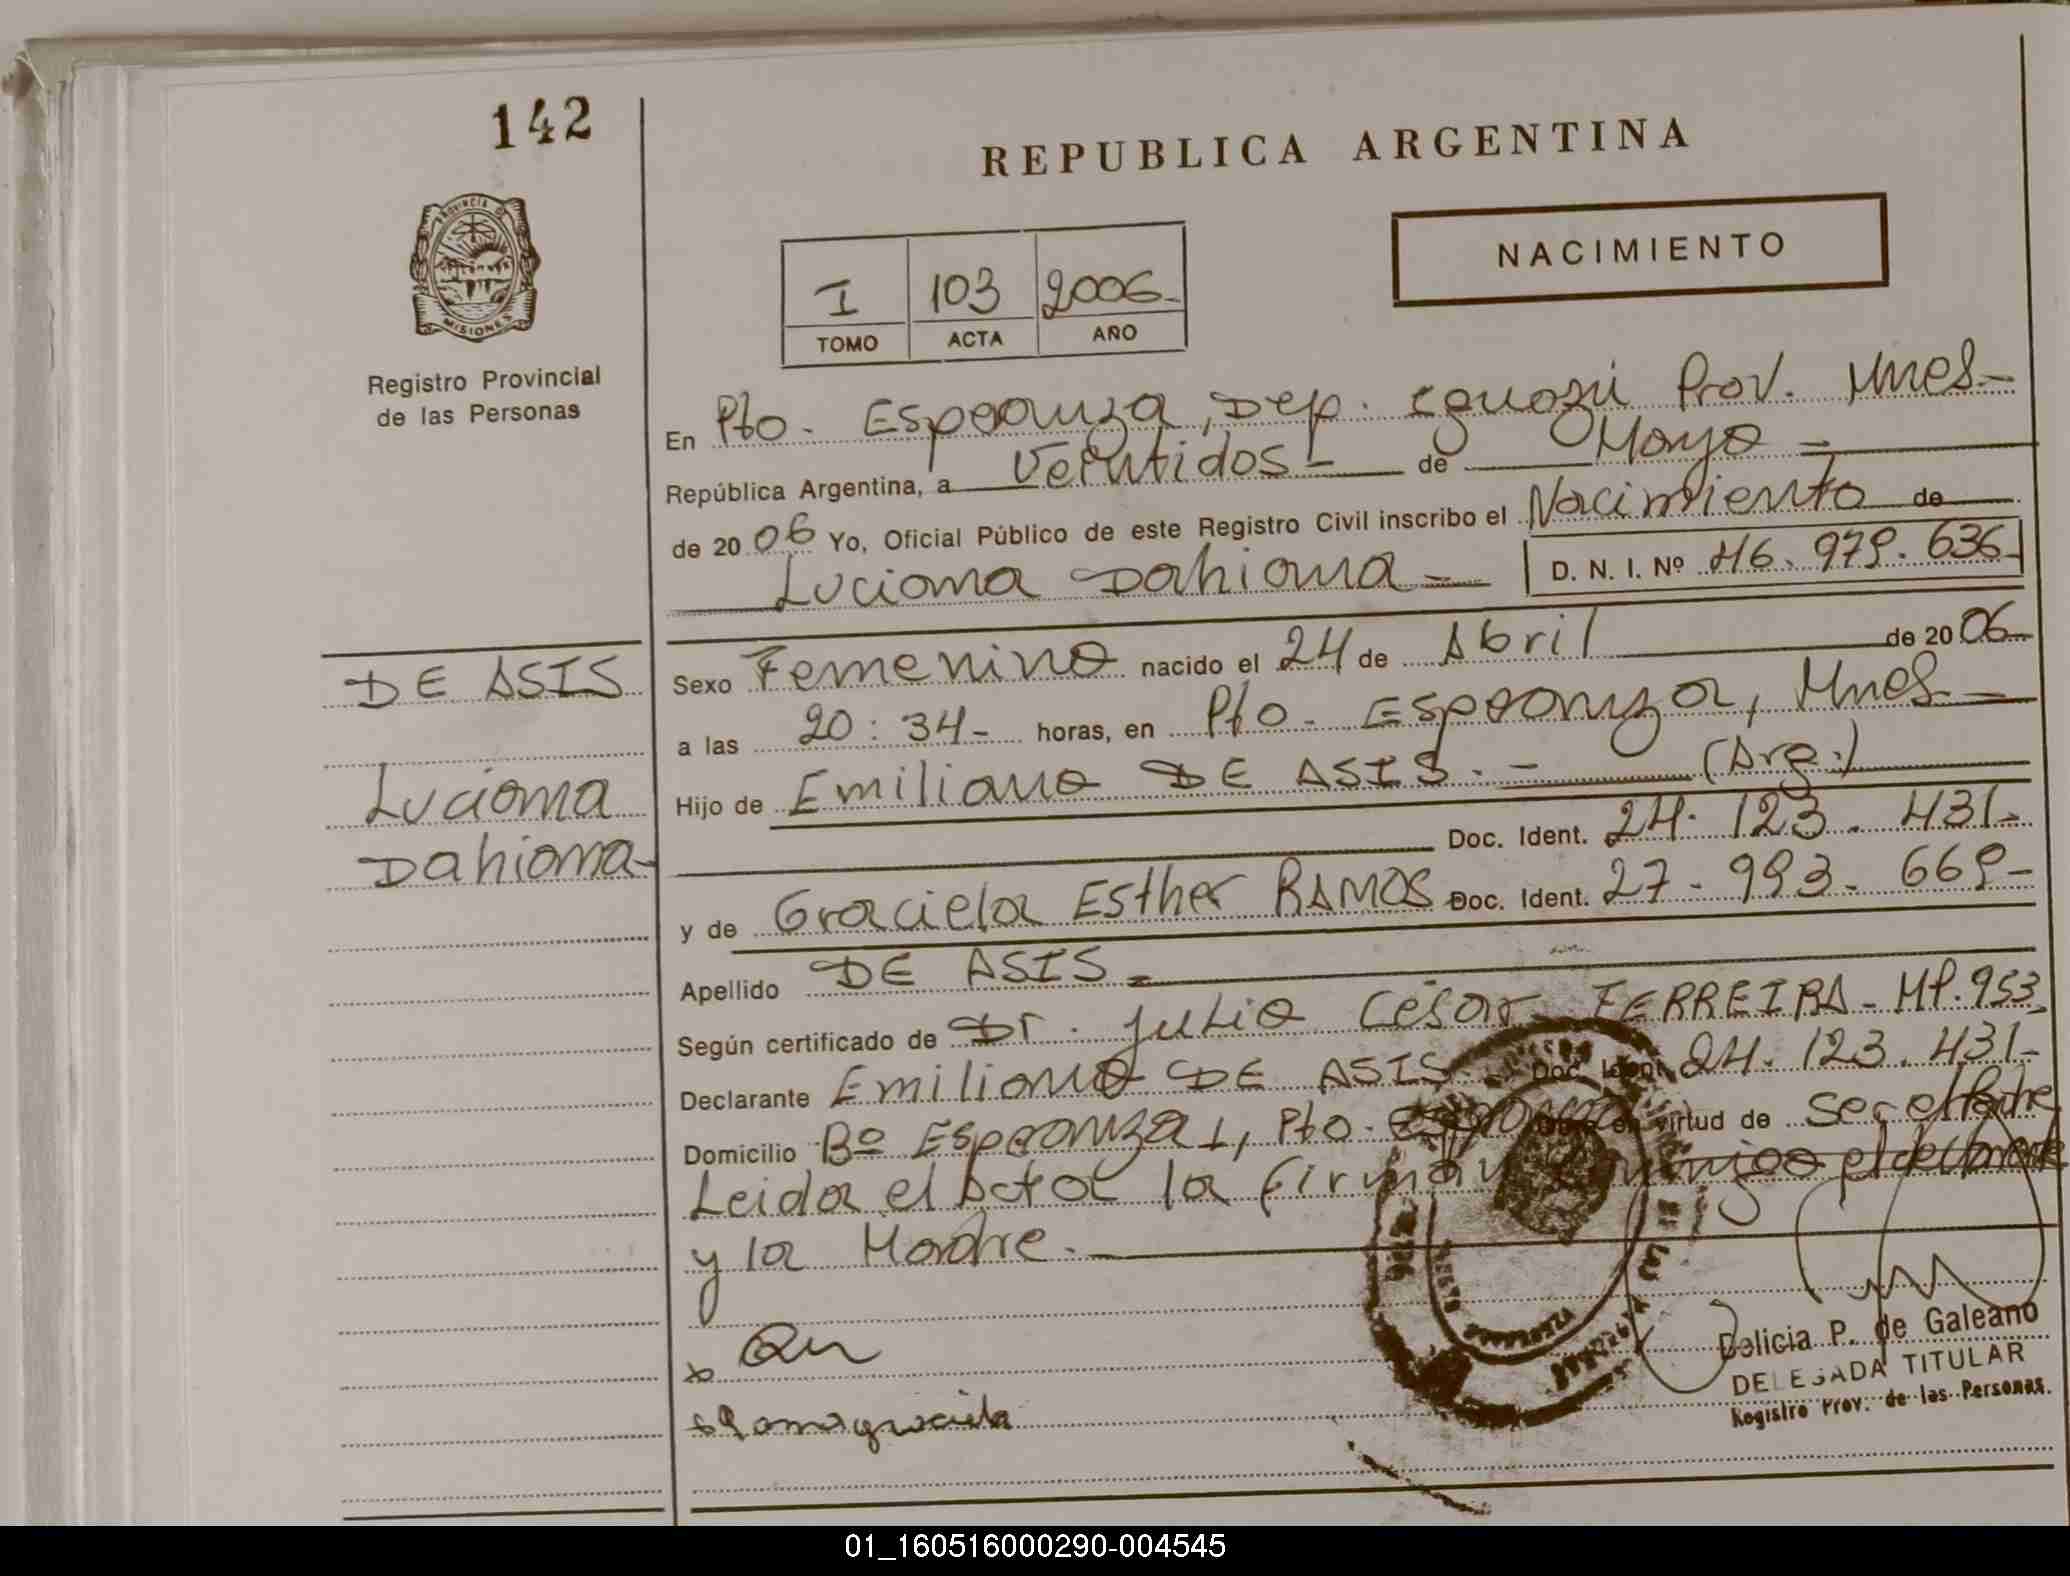 142
REPUBLICA ARGENTINA
NACIMIENTO
PROVINCIA DE
MISIONES
Registro Provincial
de las Personas
I 103 2006-
TOMO ACTA AÑO
En Pto. Esperanza, Dep. Iguazú Prov. Mnes-
República Argentina, a Veintidos - de Mayo -
de 2006 Yo, Oficial Público de este Registro Civil inscribo el Nacimiento de
Luciana Dahiana - D. N. I. Nº 46.979.636-
DE ASIS
Luciana
Dahiana-
Sexo Femenino nacido el 24 de Abril de 2006-
a las 20:34- horas, en Pto. Esperanza, Mnes-
Hijo de Emiliano DE ASIS.- (Arg.)
Doc. Ident. 24.123.431-
y de Graciela Esther RAMOS Doc. Ident. 27.993.669-
Apellido DE ASIS-
Según certificado de Dr. Julio César FERREIRA- MP.953
Declarante Emiliano DE ASIS Doc. Ident. 24.123.431-
Domicilio Bº Esperanza 1, Pto. Esperanza virtud de Ser el Padre
Leida el Acta la Firman Conmigo el declarante
y la Madre.
Delicia P. de Galeano
DELEGADA TITULAR
Registro Prov. de las Personas.
01_160516000290-004545